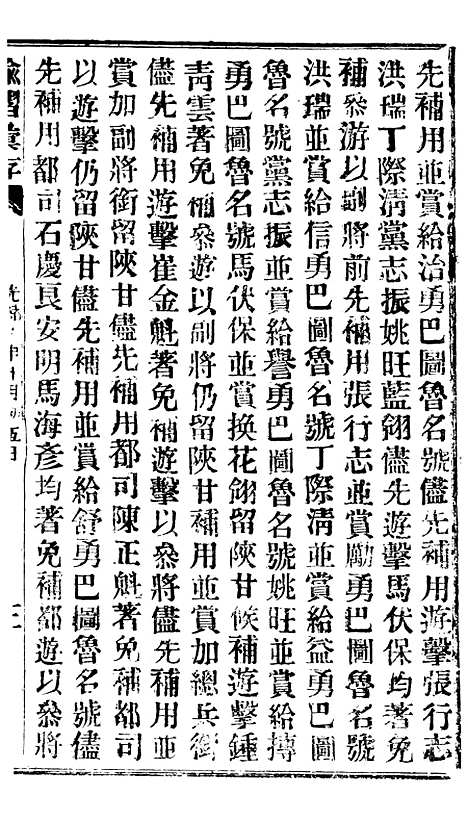 先補用並賞給治勇巴圖魯名號儘先補用遊擊張行志
洪瑞丁際淸黨志振姚旺藍翎儘先遊擊馬伏保均著免
補叅游以副將前先補用張行志並賞勵勇巴圖魯名號
洪瑞並賞給信勇巴圖魯名號丁際淸並賞給益勇巴圖
魯名號黨志振並賞給譽勇巴圖魯名號姚旺並賞給摶
勇巴圖魯名號馬伏保並賞換花翎留陝甘候補遊擊鍾
靑雲著免補叅遊以副將仍留陝甘補用並賞加總兵銜
儘先補用遊擊崔金魁著免補遊擊以叅將儘先補用並
賞加副將銜留陝甘儘先補用都司陳正魁著免補都司
以遊擊仍留陝甘儘先補用並賞給舒勇巴圖魯名號儘
先補用都司石慶良安明馬海彥均著免補都遊以叅將
諭摺彙存 光緖 年十月 五日 三